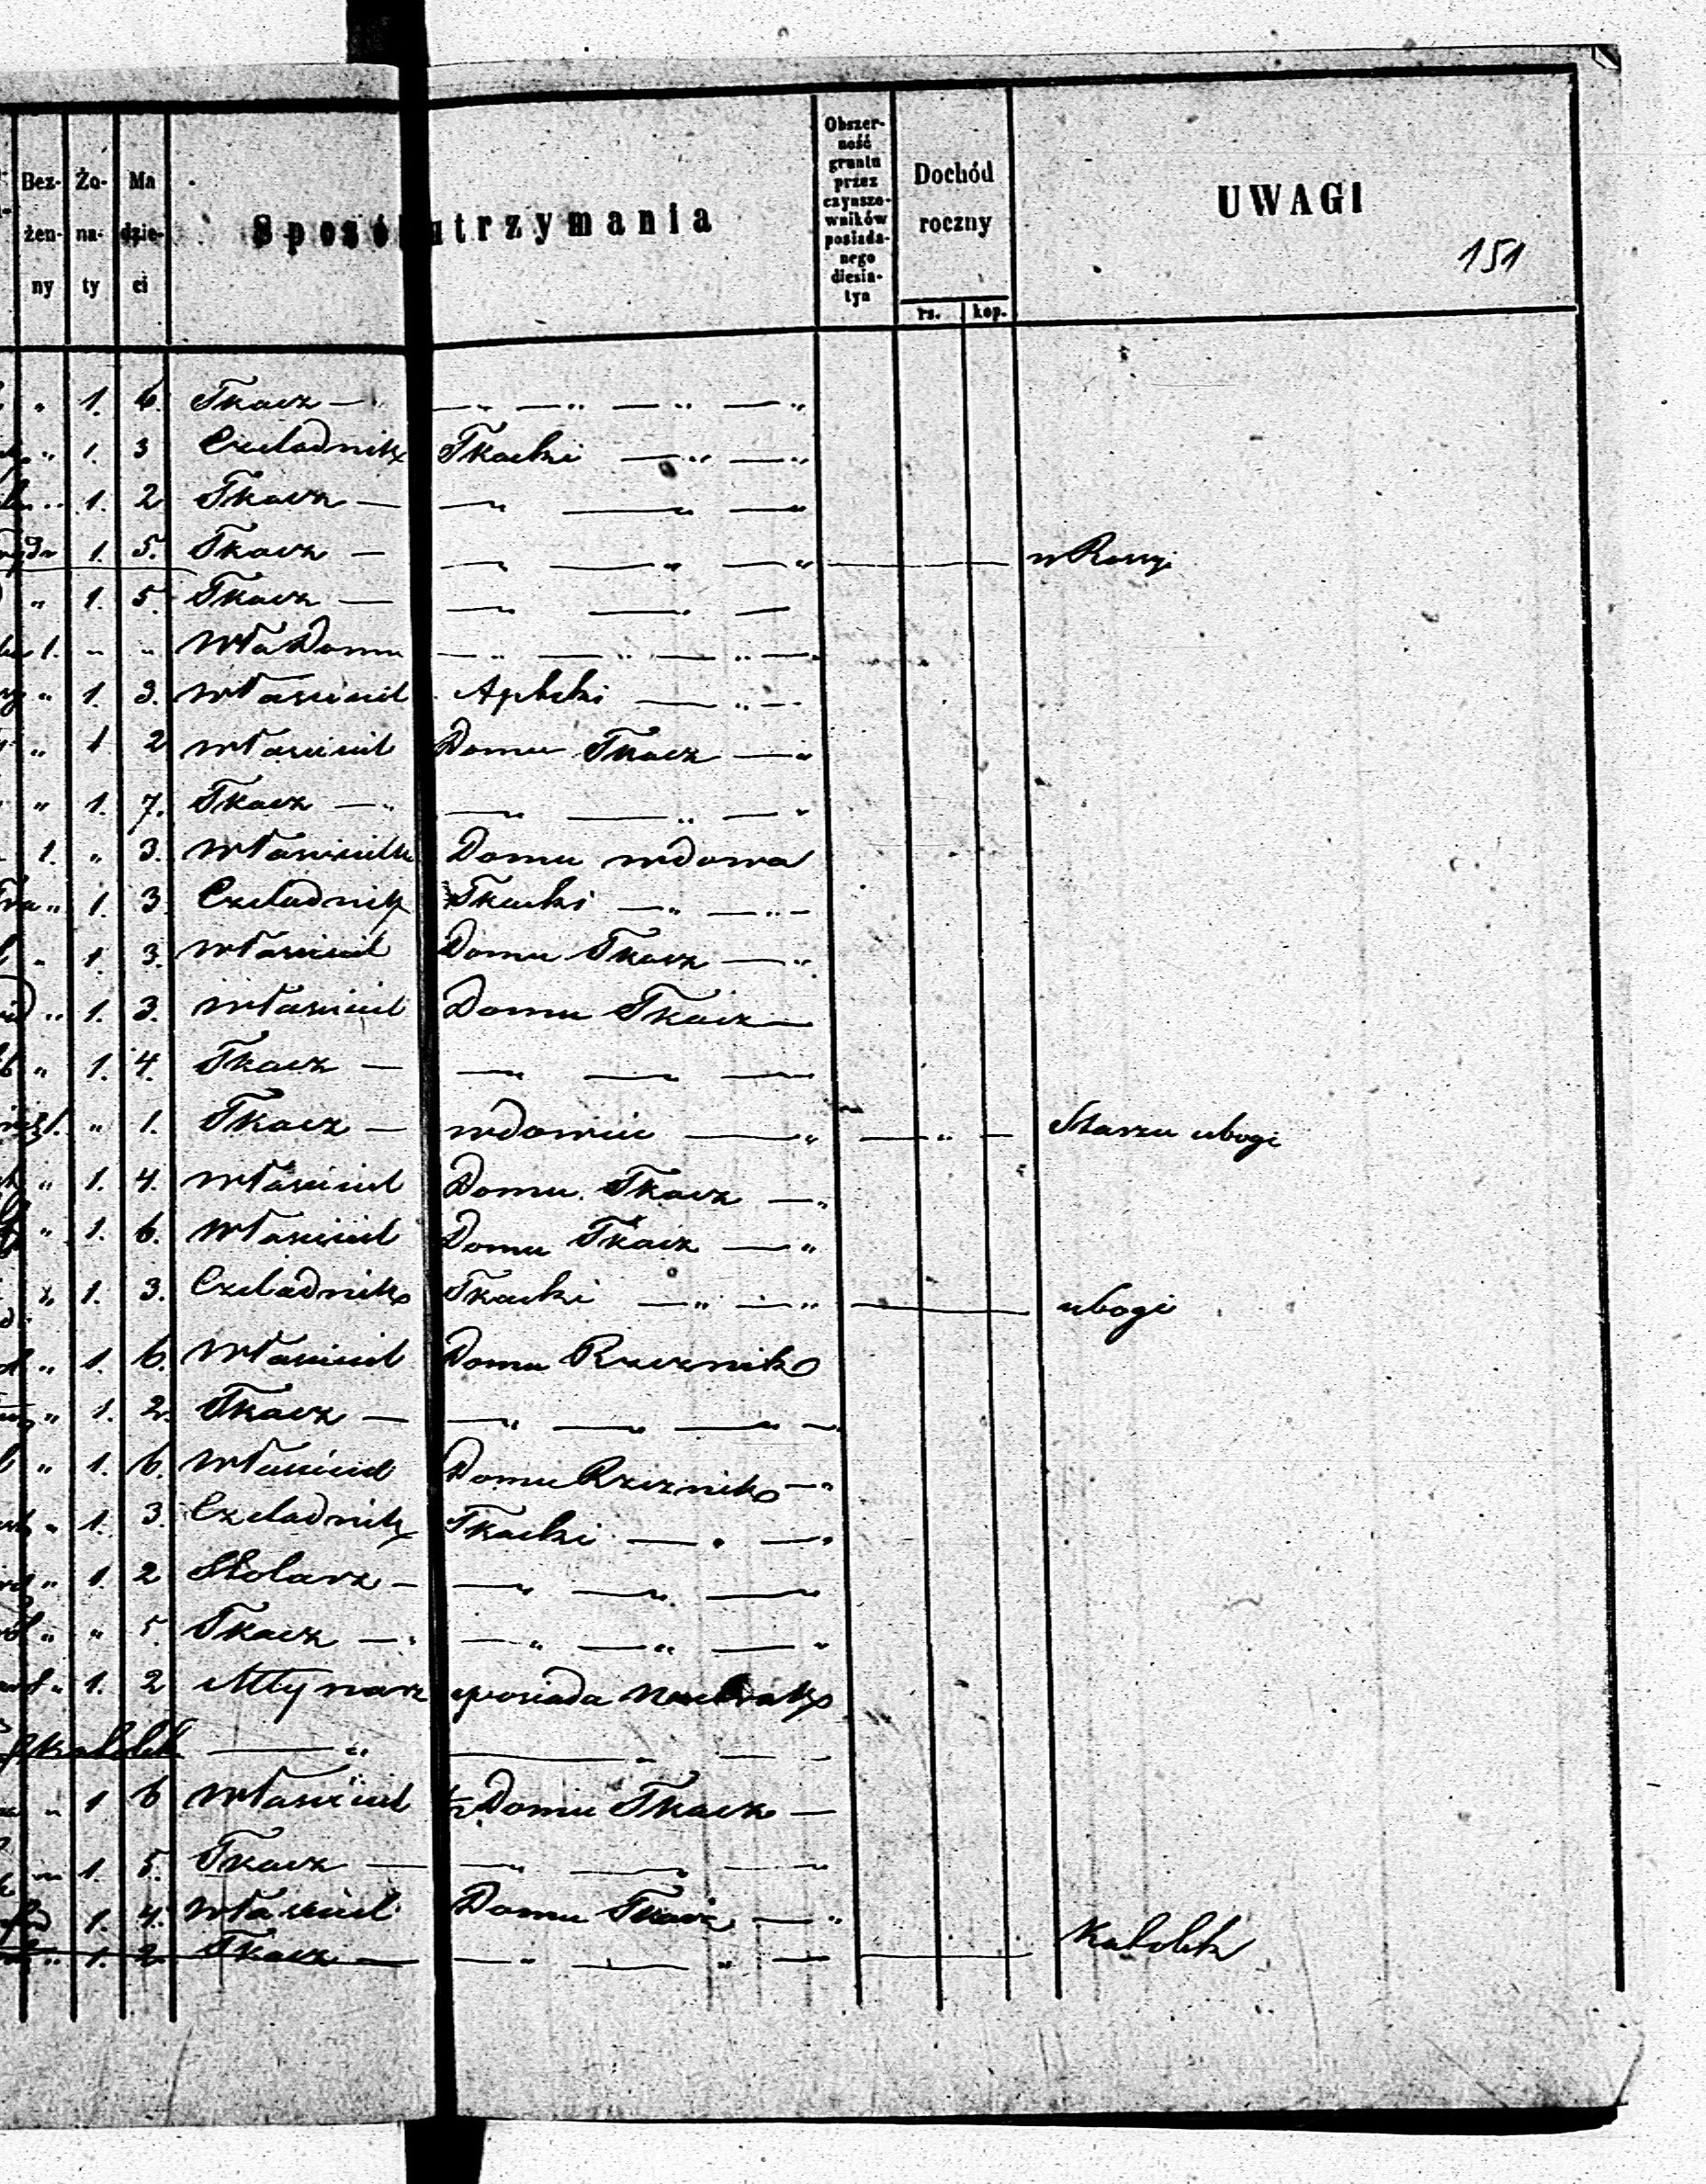 Bez- żen- ny | Żo- na- ty | Ma dzie- ci | Sposób utrzymania | Obszer- ność gruntu przez czynszo- wników posiada- nego diesia- tyn | Dochód roczny rs. kop. | UWAGI
151
" 1. 6. Tkacz —
" 1. 3 Czeladnik Tkacki — " — "
" 1. 2 Tkacz —
1. 5. Tkacz — w Rossyi
" 1. 5. Tkacz —
1. " " Wła Domu
" 1. 3. Właściciel Apteki —
" 1 2 Właściciel Domu Tkacz — "
" 1. 7. Tkacz — "
1. " 3. Właścicielka Domu wdowa
" 1. 3. Czeladnik Tkacki — " —
" 1. 3. Właściciel Domu Tkacz — "
" 1. 3. Właściciel Domu Tkacz —
" 1. 4. Tkacz —
1. " 1. Tkacz — wdowiec — " — " — Starzec ubogi
" 1. 4. Właściciel Domu Tkacz — "
" 1. 6. Właściciel Domu Tkacz — "
" 1. 3. Czeladnik Tkacki — " — " — ubogi
" 1. 6. Właściciel Domu Rzeznik
" 1. 2. Tkacz —
" 1. 6. Właściciel Domu Rzeznik — "
" 1. 3. Czeladnik Tkacki — " — "
" 1. 2 Stolarz —
" " 5. Tkacz — "
" 1. 2 Młynarz posiada
katolik — "
" 1 6 Właściciel 1/2 Domu Tkacz —
" 1. 5. Tkacz —
1. 4. Właściciel Domu Tkacz — "
" 1. 2. Tkacz — Katolik